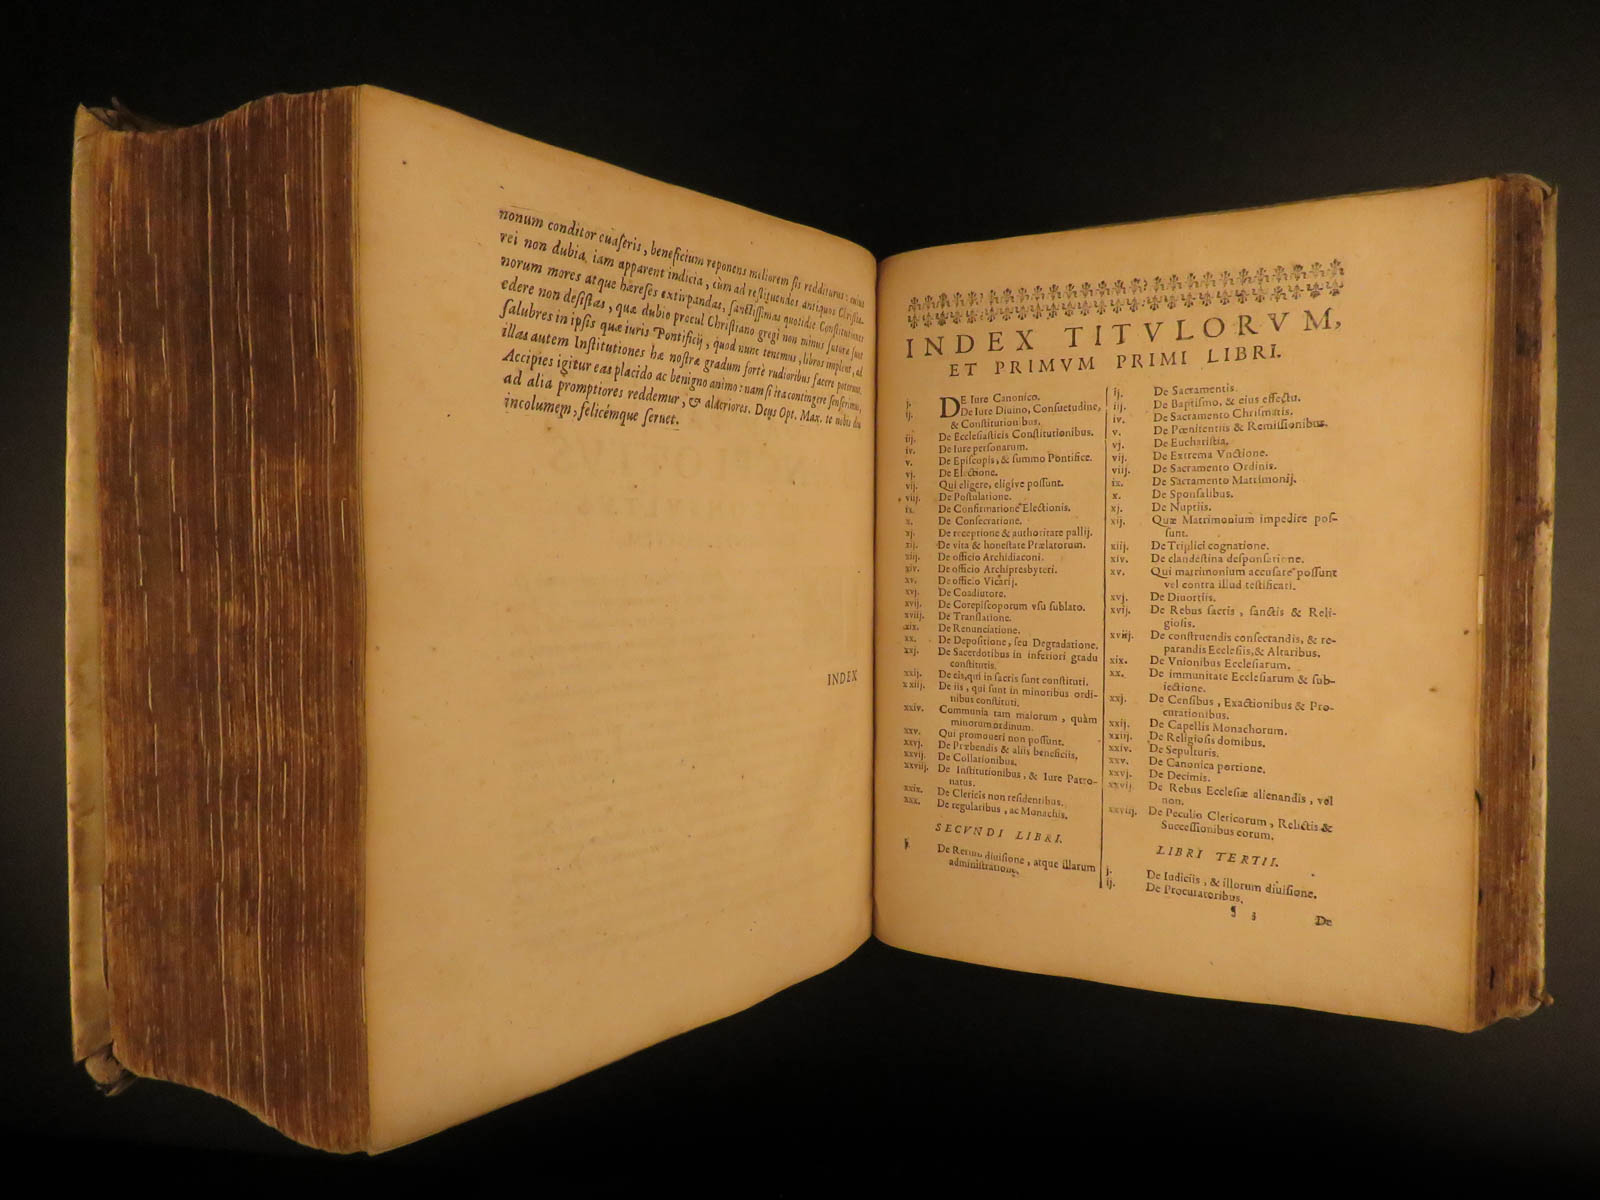 nonum conditor euaseris, beneficium reponens meliorem sis redditurus: cuius
rei non dubia iam apparent indicia, cùm ad restituendos antiquos Christia-
norum mores atque hæreses extirpandas, sanctissimas quotidie Constitutiones
edere non desistas, quæ dubio procul Christiano gregi non minus futuræ sunt
salubres in ipsis quæ iuris Pontificij, quod nunc tenemus, libros implent, ad
illas autem Institutiones hæ nostræ gradum fortè rudioribus facere poterunt.
Accipies igitur eas placido ac benigno animo: nam si ita contingere senserimus,
ad alia promptiores reddemur, & alacriores. Deus Opt. Max. te nobis diu
incolumem, felicémque seruet.
INDEX
INDEX TITVLORVM,
ET PRIMVM PRIMI LIBRI.
j. DE Iure Canonico.
ij. De Iure Diuino, Consuetudine,
& Constitutionibus.
iij. De Ecclesiasticis Constitutionibus.
iv. De Iure personarum.
v. De Episcopis, & summo Pontifice.
vj. De Electione.
vij. Qui eligere, eligive possunt.
viij. De Postulatione.
ix. De Confirmatione Electionis.
x. De Consecratione.
xj. De receptione & authoritate pallij.
xij. De vita & honestate Prælatorum.
xiij. De officio Archidiaconi.
xiv. De officio Archipresbyteri.
xv. De officio Vicarij.
xvj. De Coadiutore.
xvij. De Corepiscoporum vsu sublato.
xviij. De Translatione.
xix. De Renunciatione.
xx. De Depositione, seu Degradatione.
xxj. De Sacerdotibus in inferiori gradu
constitutis.
xxij. De eis, qui in sacris sunt constituti.
xxiij. De iis, qui sunt in minoribus ordi-
nibus constituti.
xxiv. Communia tam maiorum, quàm
minorum ordinum.
xxv. Qui promoueri non possunt.
xxvj. De Præbendis & aliis beneficiis.
xxvij. De Collationibus.
xxviij. De Institutionibus, & Iure Patro-
natus.
xxix. De Clericis non residentibus.
xxx. De regularibus, ac Monachis.
SECVNDI LIBRI.
j. De Rerum diuisione, atque illarum
administratione.
ij. De Sacramentis.
iij. De Baptismo, & eius effectu.
iv. De Sacramento Chrismatis.
v. De Pœnitentiis & Remissionibus.
vj. De Eucharistia.
vij. De Extrema Vnctione.
viij. De Sacramento Ordinis.
ix. De Sacramento Matrimonij.
x. De Sponsalibus.
xj. De Nuptiis.
xij. Quæ Matrimonium impedire pos-
sunt.
xiij. De Triplici cognatione.
xiv. De clandestina desponsatione.
xv. Qui matrimonium accusare possunt
vel contra illud testificari.
xvj. De Diuortiis.
xvij. De Rebus sacris, sanctis & Reli-
giosis.
xviij. De construendis consectandis, & re-
parandis Ecclesiis, & Altaribus.
xix. De Vnionibus Ecclesiarum.
xx. De immunitate Ecclesiarum & sub-
iectione.
xxj. De Censibus, Exactionibus & Pro-
curationibus.
xxij. De Capellis Monachorum.
xxiij. De Religiosis domibus.
xxiv. De Sepulturis.
xxv. De Canonica portione.
xxvj. De Decimis.
xxvij. De Rebus Ecclesiæ alienandis, vel
non.
xxviij. De Peculio Clericorum, Relictis &
Successionibus eorum.
LIBRI TERTII.
j. De Iudiciis, & illorum diuisione.
ij. De Procuratoribus.
¶ 3 De